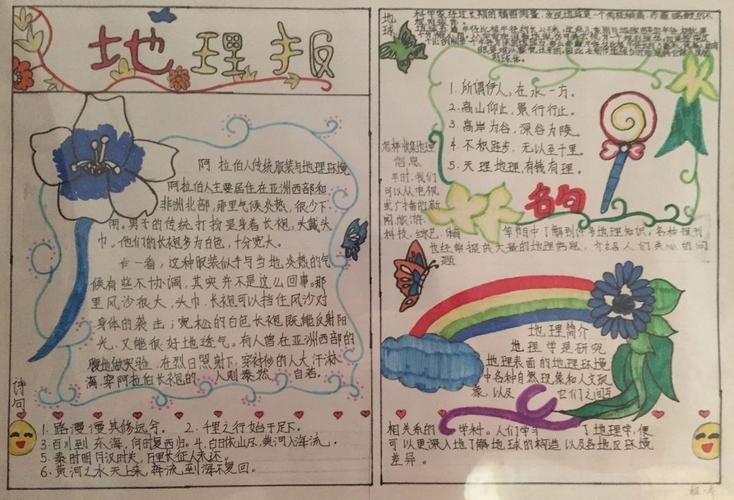 地理报
阿拉伯人传统服装与地理环境
阿拉伯人主要居住在亚洲西部和
非洲北部,那里气候炎热,很少下
雨。男子的传统打扮是身着长袍,头戴头
巾。他们的长袍多为白色,十分宽大。
乍一看,这种服装似乎与当地炎热的气
候有些不协调,其实并不是这么回事。那
里风沙很大,头巾、长袍可以挡住风沙对
身体的袭击;宽松的白色长袍既能反射阳
光,又能很好地透气。有人曾在亚洲西部的
做实验,在烈日照射下,穿衬衫的人大汗淋
漓,穿阿拉伯长袍的人则泰然自若。
诗句
1.路漫漫其修远兮。2.千里之行始于足下。
3.百川到东海,何时复西归。4.白日依山尽,黄河入海流。
5.秦时明月汉时关,万里长征人未还。
6.黄河之水天上来,奔流到海不复回。
地球
科学家经过长期的精密测量,发现地球是一个两极稍扁,赤道略鼓的不
规则球体。
1.所谓伊人,在水一方。
2.高山仰止,景行行止。
3.高岸为谷,深谷为陵。
4.不积跬步,无以至千里。
5.天理地理,有钱有理。
名句
怎样收集地理
信息
平时,我们
可以从电视
或广播的新
闻、旅游、
科技、综艺、
等节目中了解到许多地理知识。各种报刊
也经常提供大量的地理信息,介绍人们关心的问
题
地理简介
地理学是研究
地理表面的地理环境
中各种自然现象和人文现
象,以及它们之间
相关系的学科。人们学习了地理学,便
可以更深入地了解地球的构造以及各地区环境
差异。